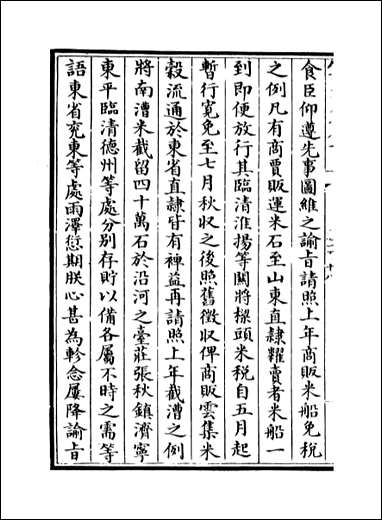 食臣仰遵先事圖維之諭㫖請照上年商販米船免稅
之例凡有商賈販運米石至山東直隸糶賣者米船一
到即便放行其臨清淮揚等關將樑頭米稅自五月起
暫行寛免至七月秋收之後照舊徴收俾商販雲集米
穀流通於東省直隸皆有裨益再請照上年截漕之例
將南漕米截留四十萬石於沿河之臺莊張秋鎮濟寧
東平臨清德州等處分別存貯以備各屬不時之需等
語東省兖東等處雨澤愆期朕心甚為軫念屢降諭㫖